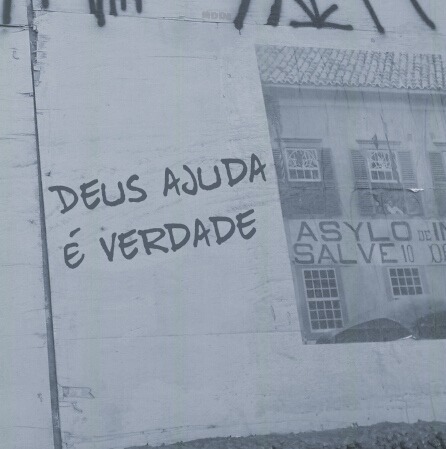 DEUS AJUDA
É VERDADE
ASYLO DE
SALVE 10